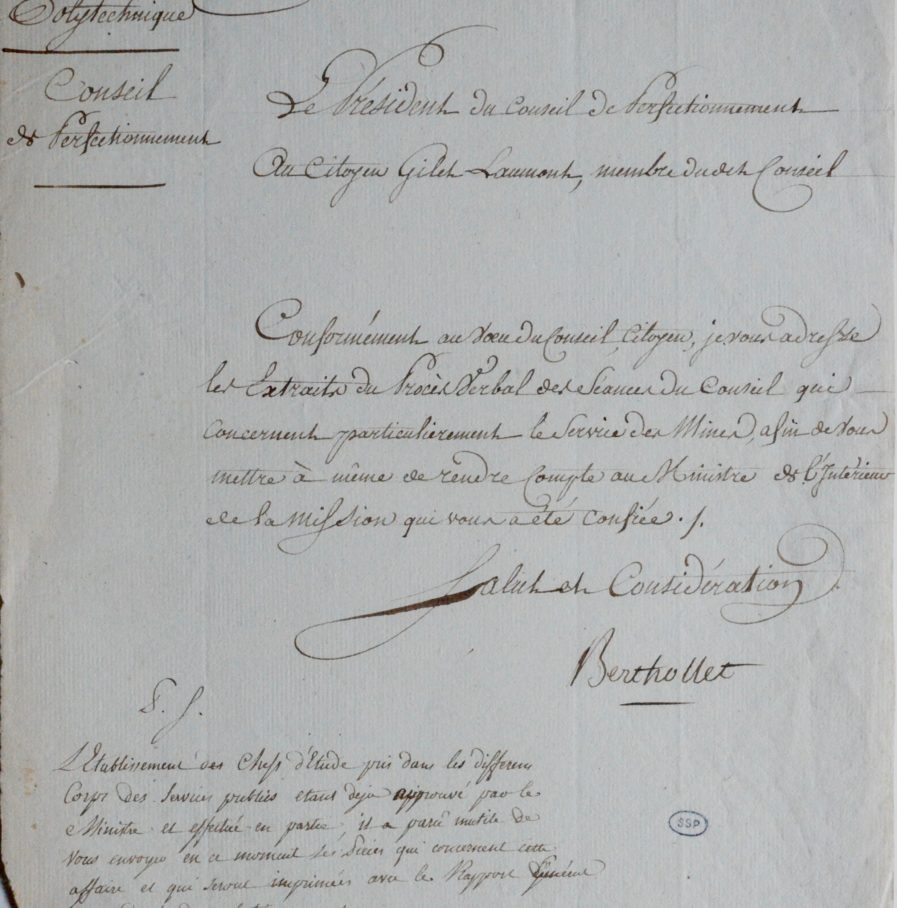 Polytechnique
Conseil
de Perfectionnement
Le Président du Conseil de Perfectionnement
Au Citoyen Gilet-Laumont, membre dudit Conseil
Conformément au Vœu du Conseil, Citoyen, je vous adresse
les Extraits du Procès Verbal des Séances du Conseil qui
concernent particulièrement le Service des Mines, afin de vous
mettre à même de rendre compte au Ministre de l'Intérieur
de la mission qui vous a été confiée ./.
Salut et Considération
Berthollet
P. S.
L'Etablissement des Chefs d'Etude pris dans les differens
Corps des Services publics etant deja approuvé par le
Ministre et effectué en partie, il a parû inutile de
vous envoyer en ce moment les Pièces qui concernent cette
affaire et qui seront imprimées avec le Rapport Général
SSP